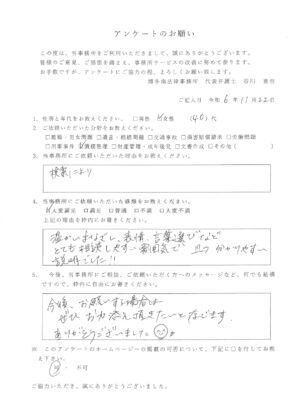 アンケートのお願い
この度は、当事務所をご利用いただきまして、誠にありがとうございます。
皆様のご意見、ご感想を踏まえ、事務所サービスの改善に努めて参ります。
お手数ですが、アンケートにご協力の程、よろしくお願い致します。
博多南法律事務所 代表弁護士
ご記入日 令和6年11月22日
1. 性別と年代をお教えください。 □男性 女性 (40)代
2. ご依頼いただいた分野をお教えください。
□離婚・男女問題 □遺言・相続問題 □交通事故 □損害賠償請求 □労働問題
□刑事事件 債務整理 □財産管理・成年後見 □文書作成 □その他( )
3. 当事務所にご依頼いただいた理由をお教えください。
検索により
4. 当事務所にご依頼いただいた感想をお教えください。
大変満足 □満足 □普通 □不満 □大変不満
上記の理由を枠内にお書きください。
温かいまなざし、表情、言葉選びなど
とてもお話しやすい雰囲気で 且つ 分かりやすい
説明でした!!
5. 今後、当事務所にご相談、ご依頼いただく方へのメッセージなど、何でも結構
ですので、枠内に自由にお書きください。
今後、お願いする場合は
ぜひ お力添え頂きたいと存じます。
ありがとうございました
※ このアンケートのホームページへの掲載の可否について、下記に○を付してお教
え下さい。
可 ・ 不可
ご協力いただき、誠にありがとうございました。